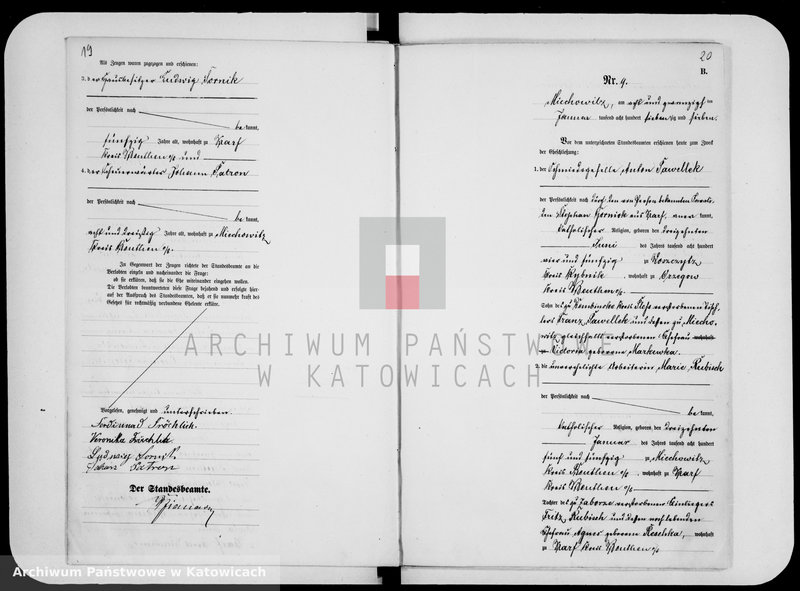 19
Als Zeugen waren zugezogen und erschienen:
3. der Hausbesitzer Ludwig Tornik
der Persönlichkeit nach
be kannt,
fünfzig Jahre alt, wohnhaft zu Karf
Kreis Beuthen o/s und
4. der Johann Patron
der Persönlichkeit nach
be kannt,
acht und dreißig Jahre alt, wohnhaft zu Miechowitz
Kreis Beuthen o/s.
In Gegenwart der Zeugen richtete der Standesbeamte an die
Verlobten einzeln und nacheinander die Frage:
ob sie erklären, daß sie die Ehe miteinander eingehen wollen.
Die Verlobten beantworteten diese Frage bejahend und erfolgte hier-
auf der Ausspruch des Standesbeamten, daß er sie nunmehr kraft des
Gesetzes für rechtmäßig verbundene Eheleute erkläre.
Vorgelesen, genehmigt und unterschrieben.
Ferdinand Fröchlich.
Veronika
Ludwig Tornik
Johann Patron
Der Standesbeamte.
20
B.
Nr. 9.
Miechowitz, am acht und zwanzigsten
Januar tausend acht hundert siebenzig und sieben.
Vor dem unterzeichneten Standesbeamten erschienen heute zum Zweck
der Eheschließung:
1. der Schmiedgeselle Anton Pawellek
der Persönlichkeit nach durch den von Person bekannten
Stephan Gornick aus Karf, aner kannt,
katholischer Religion, geboren den dreizehnten
Juni des Jahres tausend acht hundert
vier und fünfzig zu
Kreis Rybnik, wohnhaft zu
Kreis Beuthen o/s.
Sohn des zu Kreis Pless verstorbenen
Franz Pawellek und dessen zu Miecho-
witz gleichfalls verstorbenen Ehefrau wohnhaft
zu Victoria geborene Markewka.
2. die unverehelichte Arbeiterin Marie Kubisch
der Persönlichkeit nach
be kannt,
katholischer Religion, geboren den dreizehnten
Januar des Jahres tausend acht hundert
fünf und fünfzig zu Miechowitz
Kreis Beuthen o/s, wohnhaft zu Karf
Kreis Beuthen o/s
Tochter des zu Zaborze verstorbenen Einliegers
Fritz Kubisch und dessen noch lebenden
Ehefrau Agnes geborene Reschka, wohnhaft
zu Karf Kreis Beuthen o/s
ARCHIWUM PAŃSTWOWE
W KATOWICACH
Archiwum Państwowe w Katowicach